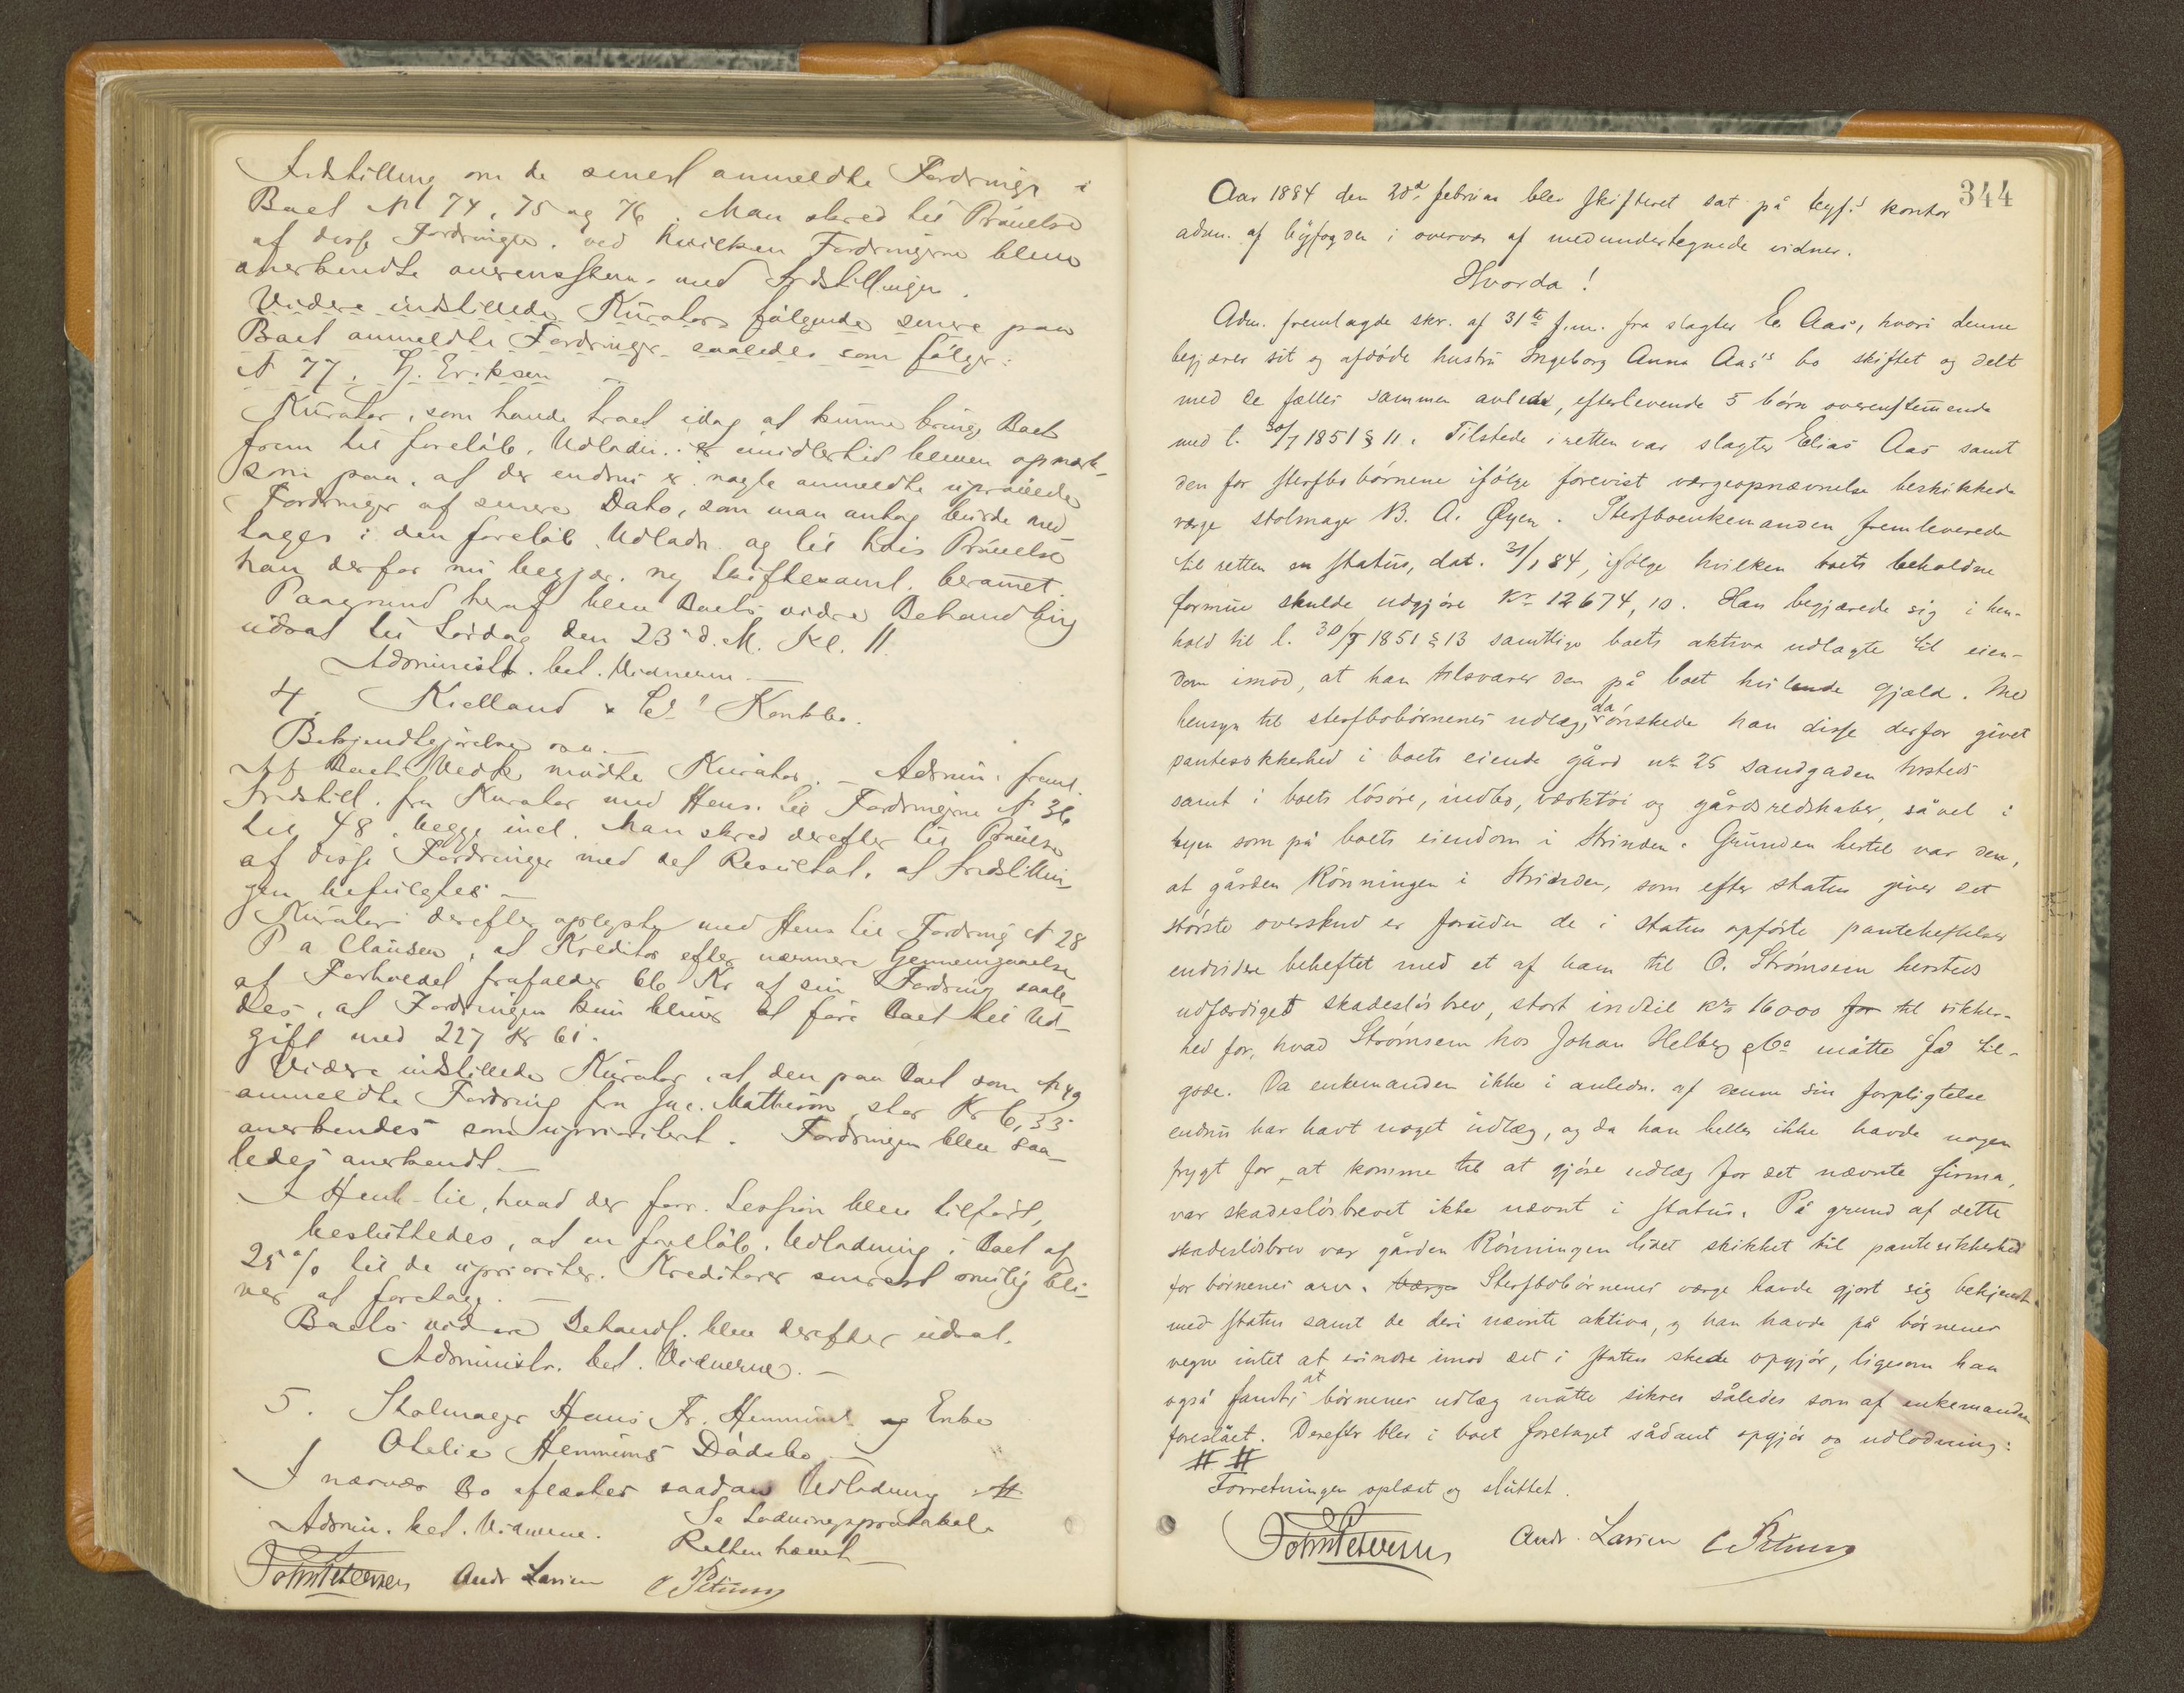 Indstilling om de senest anmeldte Fordringer i
Boet No 74, 75 og 76. Man skred til Prøvelse
af disse Fordringer, ved hvilken Fordringerne bleve
anerkendte overensstem. med Indstillingen.
Videre indstillede Kurator følgende senere paa
Boet anmeldte Fordringer saaledes som følger:
No 77. H. Eriksen
Kurator, som havde troet idag at kunne bringe Boet
frem til foreløb. Udlodn. er imidlertid bleven opmærk-
som paa, at der endnu er nogle anmeldte uprøvede
Fordringer af senere Dato, som man antog burde med
tages i den foreløb. Udlodn. og til hvis Prøvelse
han derfor nu begjær. ny Skiftesaml. beramet.
Paagrund heraf blev Boets videre Behandling
udsat til Lørdag den 23de d. M. Kl. 11.
Administr. bet. Vidnerne. —
4. Kielland & Co's Konkbo.
Bekjendtgjørelse
Af Boets Vedk mødte Kurator. — Admin. freml.
Indstill. fra Kurator med Hens. til Fordringerne No 36
til 48, begge incl. Man skred derefter til Prøvelse
af disse Fordringer med det Resultat, at Indstillin
gen befulgtes —
Kurator derefter oplyste med Hens til Fordring No 28
P a Clausen, at Kreditor efter nærmere Gennemgaaelse
af Forholdet frafalder 66 Kr af sin Fordring saale
des, at Fordringen kun bliver at føre Boet til Ud-
gift med 227 Kr 61.
Videre indstillede Kurator, at den paa Boet som No 49
anmeldte Fordring fra Jac. Matheson, stor Kr 6,33
anerkendes som uprioritert. Fordringen blev saa-
ledes anerkendt. —
I Henh. til, hvad der forr. Session blev tilført,
besluttedes, at en foreløb. Udlodning i Boet af
25 % til de uprioriter. Kreditorer snarest mulig bli-
ver at foretage. —
Boets videre Behandl. blev derefter udsat.
Administr. bet. Vidnerne. —
5. Stolmager Hans Fr. Hemmins og Enke
Otelie Hemmins Dødsbo —
I nærvær Bo afsluttes saadan Udlodning #
Admin. bet. Vidnerne. Se Lodningsprotokol.
Retten hævet —
John Petersen Andr Larsen C Petersen
344
Aar 1884 den 20de februar blev skifteret sat på byf.s kontor
adm. af byfogden i overvær af medundertegnede vidner.
Hvorda!
Adm. fremlagde skr. af 31te f.m. fra slagter E. Aas, hvori denne
begjærer sit og afdøde hustru Ingeborg Anna Aas's bo skiftet og delt
med de fælles sammen avlede, efterlevende 5 børn overenstemmende
med l. 30/7 1851 § 11. Tilstede i retten var slagter Elias Aas samt
den for sterfbobørnene ifølge forevist værgeopnævnelse beskikkede
værge stolmager B. A. Øyen. Sterfboenkemanden fremleverede
til retten en status, dat. 31/1 84, ifølge hvilken boets beholdne
formue skulde udgjøre Kr 12674,10. Han begjærede sig i hen-
hold til l. 30/7 1851 § 13 samtlige boets aktiva udlagte til eien-
dom imod, at han tilsvarer den på boet hvilende gjæld. Med
hensyn til sterfbobørnenes udlæg, da ønskede han disse derfor givet
pantesikkerhed i boets eiende gård No 25 sandgaden hersteds
samt i boets løsøre, indbo, værktøi og gårdsredskaber, såvel i
byen som på boets eiendom i Strinden. Grunden hertil var den,
at gården Rønningen i Strinden, som efter status giver det
største overskud er foruden de i status opførte panteheftelser
endvidere beheftet med et af ham til O. Strømsem hersteds
udfærdiget skadesløsbrev, stort indtil Kr 16000 for til sikker-
hed for, hvad Strømsem hos Johan Helberg & Co måtte få til-
gode. Da enkemanden ikke i anledn. af denne sin forpligtelse
endnu har havt noget udlæg, og da han heller ikke havde nogen
frygt for at komme til at gjøre udlæg for det nævnte firma,
var skadesløsbrevet ikke nævnt i status. På grund af dette
skadesløsbrev var gården Rønningen lidet skikket til pantesikkerhed
for børnenes arv. Værge Sterfbobørnenes værge havde gjort sig bekjendt
med status samt de deri nævnte aktiva, og han havde på børnenes
vegne intet at erindre imod det i status skede opgjør, ligesom han
også fandt, at børnenes udlæg måtte sikres således som af enkemanden
foreslået. Derefter blev i boet foretaget sådant opgjør og udlodning:
# #
Forretningen oplæst og sluttet.
John Petersen Andr. Larsen C Petersen